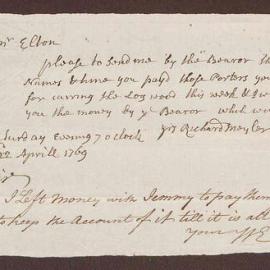 Mr Elton
please to Send me by the Bearor the
Names & time you payd those Porters you
for carring the Logwood this week & I w
you the money by ye Bearor which wi
Saturday Evening 7 o Clock yrs Richard Mey
Aprill 1769
Sir
I Left money with Jemmy to pay them
to keep the Account of it till it is all
Your